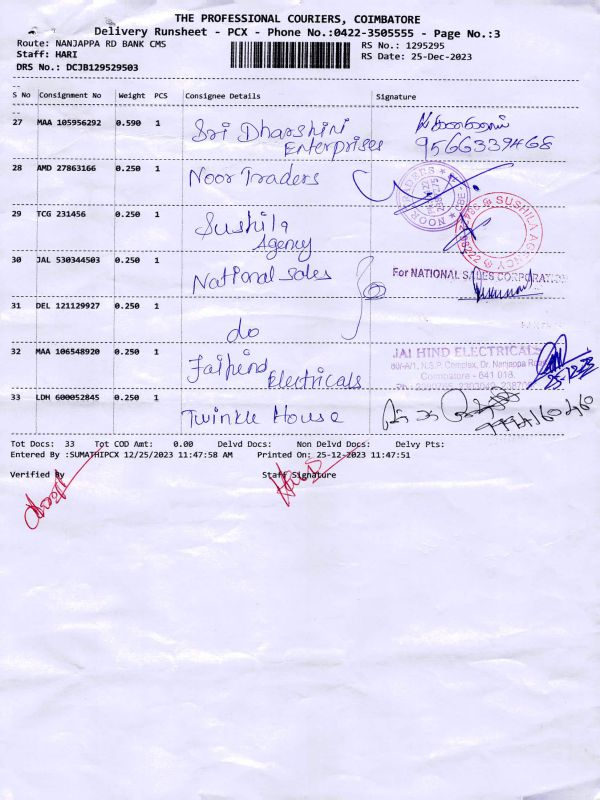 THE PROFESSIONAL COURIERS, COIMBATORE
Delivery Runsheet - PCX - Phone No.:0422-3505555 - Page No.:3
Route: NANJAPPA RD BANK CMS RS No.: 1295295
Staff: HARI RS Date: 25-Dec-2023
DRS No.: DCJB129529503
S No Consignment No Weight PCS Consignee Details Signature
27 MAA 105956292 0.590 1 Sri Dharshini Enterprises
9566339468
28 AMD 27863166 0.250 1 Noor Traders
NOOR TRADERS
29 TCG 231456 0.250 1 Sushila Agency
SUSHILA AGENCY
30 JAL 530344503 0.250 1 National Sales
For NATIONAL SALES CORPORATION
31 DEL 121129927 0.250 1 do
32 MAA 106548920 0.250 1 Jaihind Electricals
JAI HIND ELECTRICALS
N.S.P. Complex, Dr. Nanjappa Road
Coimbatore - 641 018.
25-12-23
33 LDH 600052845 0.250 1 Twinkle House
Tot Docs: 33 Tot COD Amt: 0.00 Delvd Docs: Non Delvd Docs: Delvy Pts:
Entered By :SUMATHIPCX 12/25/2023 11:47:58 AM Printed On: 25-12-2023 11:47:51
Verified by Staff Signature